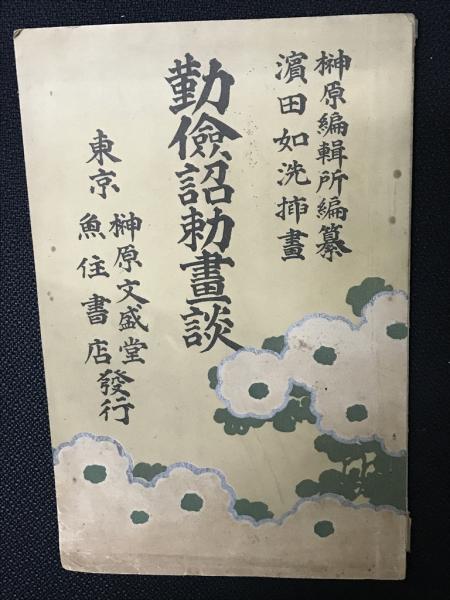 榊原編輯所編纂
濱田如洗揷畫
勤儉詔勅畫談
東京
榊原文盛堂
魚住書店
發行